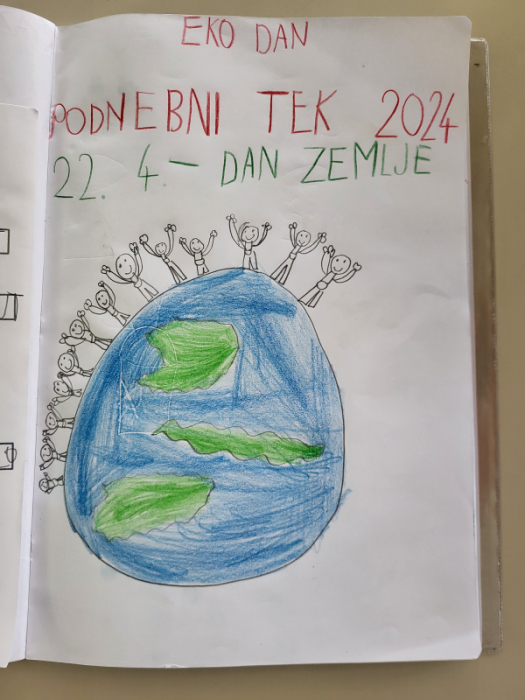 EKO DAN
PODNEBNI TEK 2024
22. 4. - DAN ZEMLJE